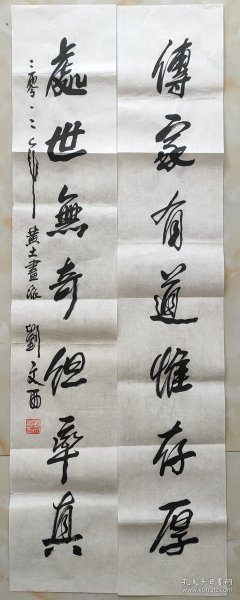 傳家有道惟存厚
處世無奇但率真
二零一二年 黄土畫派 劉文西
孔夫子旧书网